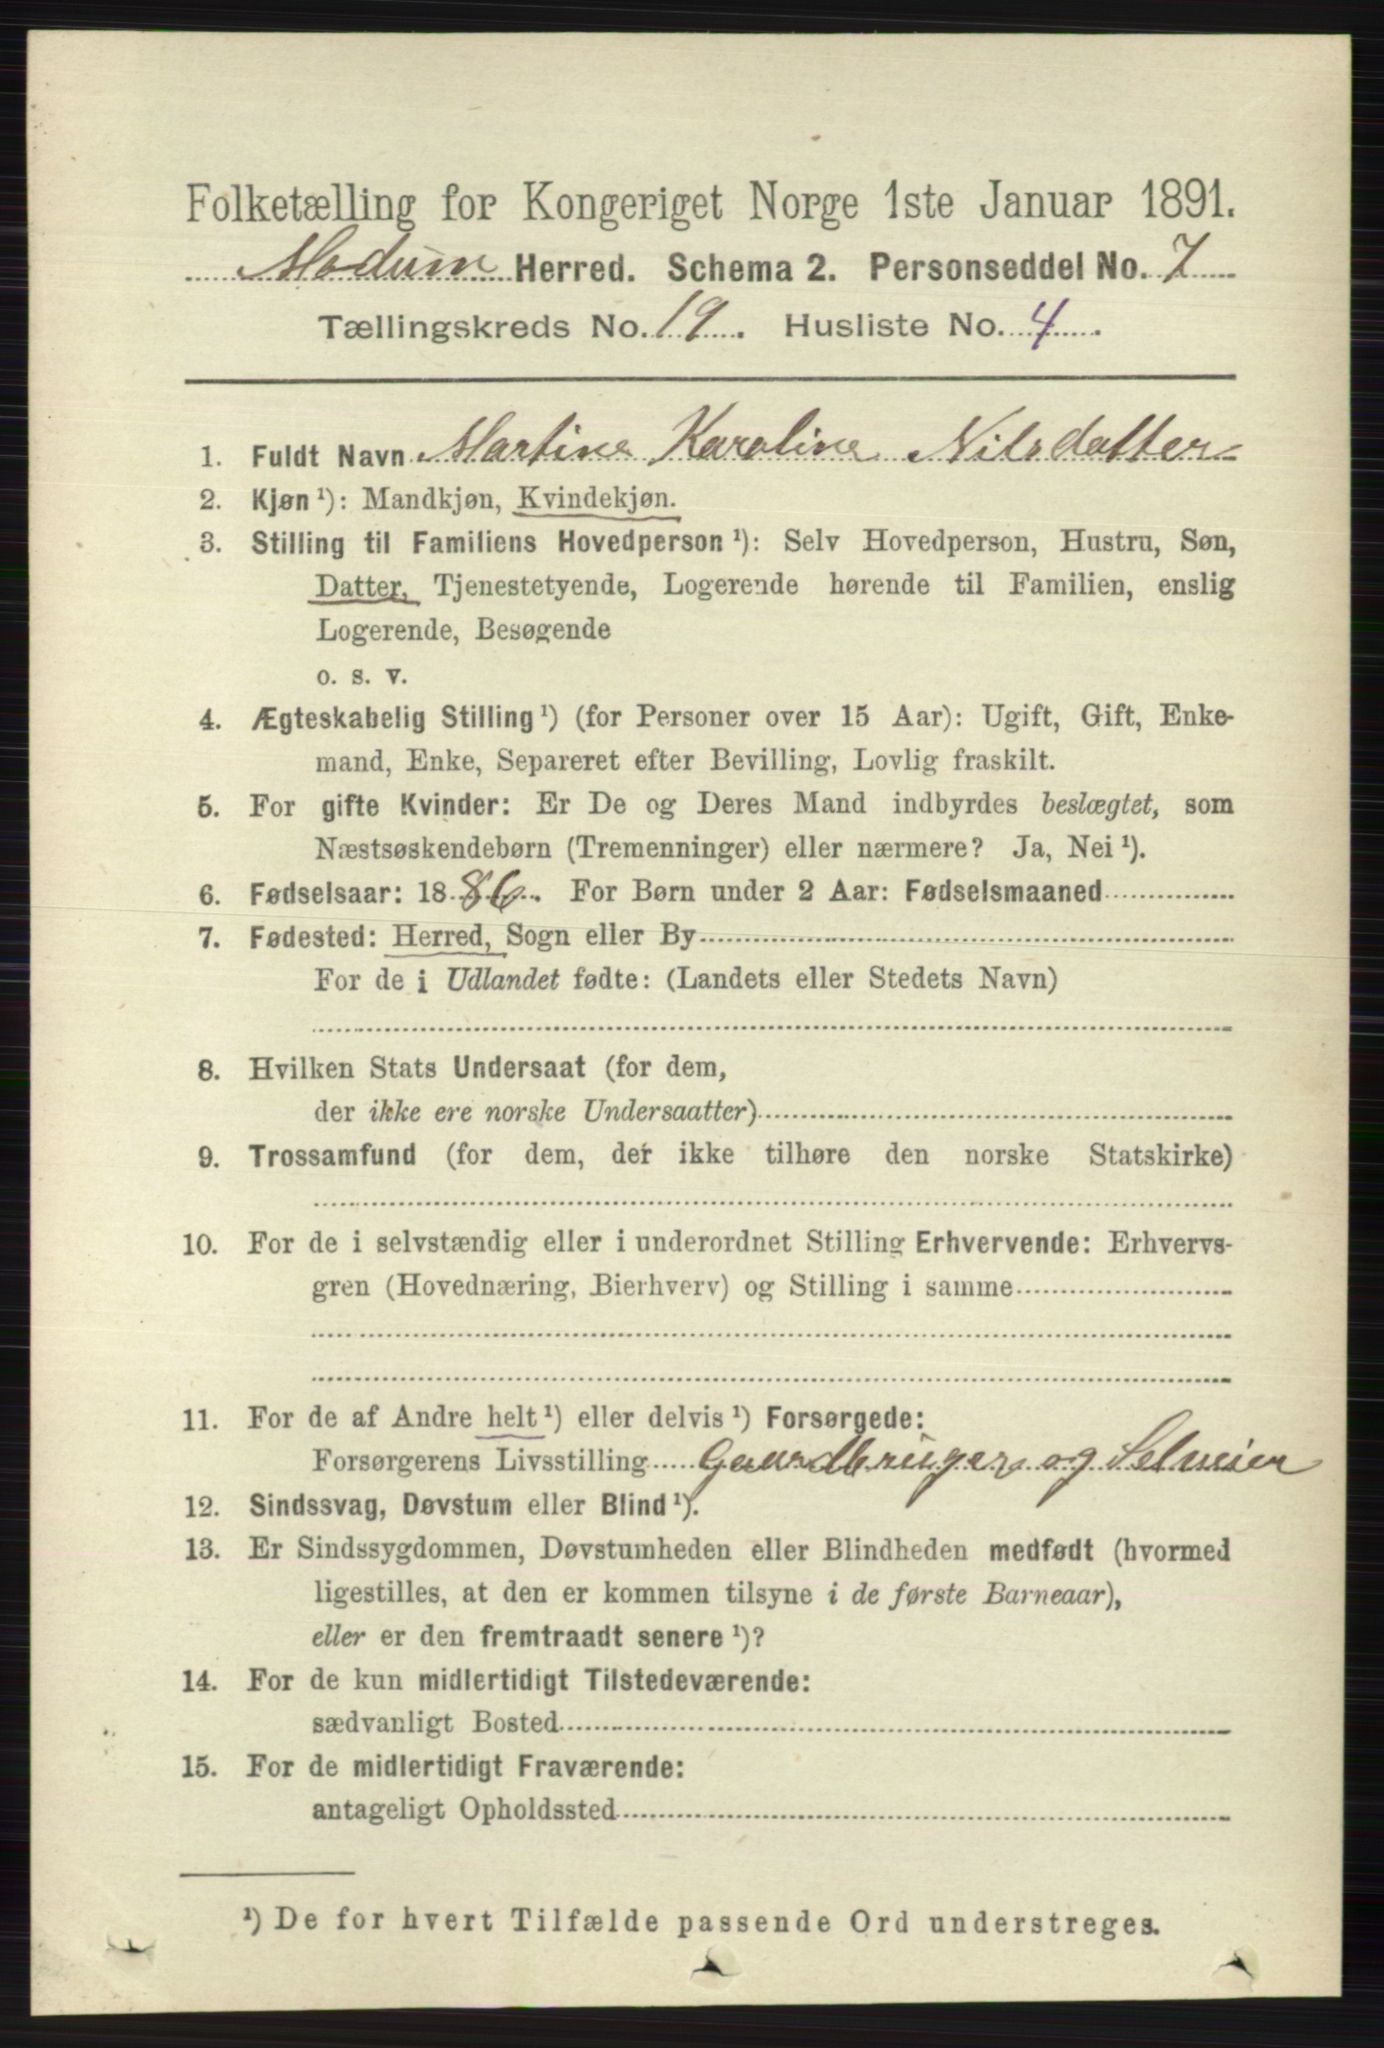 Folketælling for Kongeriget Norge 1ste Januar 1891.
Modum Herred. Schema 2. Personseddel No. 7
Tællingskreds No. 19. Husliste No. 4.
1. Fuldt Navn Martine Karoline Nilsdatter
2. Kjøn ¹): Mandkjøn, Kvindekjøn.
3. Stilling til Familiens Hovedperson ¹): Selv Hovedperson, Hustru, Søn,
Datter, Tjenestetyende, Logerende hørende til Familien, enslig
Logerende, Besøgende
o. s. v.
4. Ægteskabelig Stilling ¹) (for Personer over 15 Aar): Ugift, Gift, Enke-
mand, Enke, Separeret efter Bevilling, Lovlig fraskilt.
5. For gifte Kvinder: Er De og Deres Mand indbyrdes beslægtet, som
Næstsøskendebørn (Tremenninger) eller nærmere? Ja, Nei ¹).
6. Fødselsaar: 1886. For Børn under 2 Aar: Fødselsmaaned
7. Fødested: Herred, Sogn eller By
For de i Udlandet fødte: (Landets eller Stedets Navn)
8. Hvilken Stats Undersaat (for dem,
der ikke ere norske Undersaatter)
9. Trossamfund (for dem, der ikke tilhøre den norske Statskirke)
10. For de i selvstændig eller i underordnet Stilling Erhvervende: Erhvervs-
gren (Hovednæring, Bierhverv) og Stilling i samme
11. For de af Andre helt ¹) eller delvis ¹) Forsørgede:
Forsørgerens Livsstilling Gaardbruger og Selveier
12. Sindssvag, Døvstum eller Blind ¹).
13. Er Sindssygdommen, Døvstumheden eller Blindheden medfødt (hvormed
ligestilles, at den er kommen tilsyne i de første Barneaar),
eller er den fremtraadt senere ¹)?
14. For de kun midlertidigt Tilstedeværende:
sædvanligt Bosted
15. For de midlertidigt Fraværende:
antageligt Opholdssted
¹) De for hvert Tilfælde passende Ord understreges.